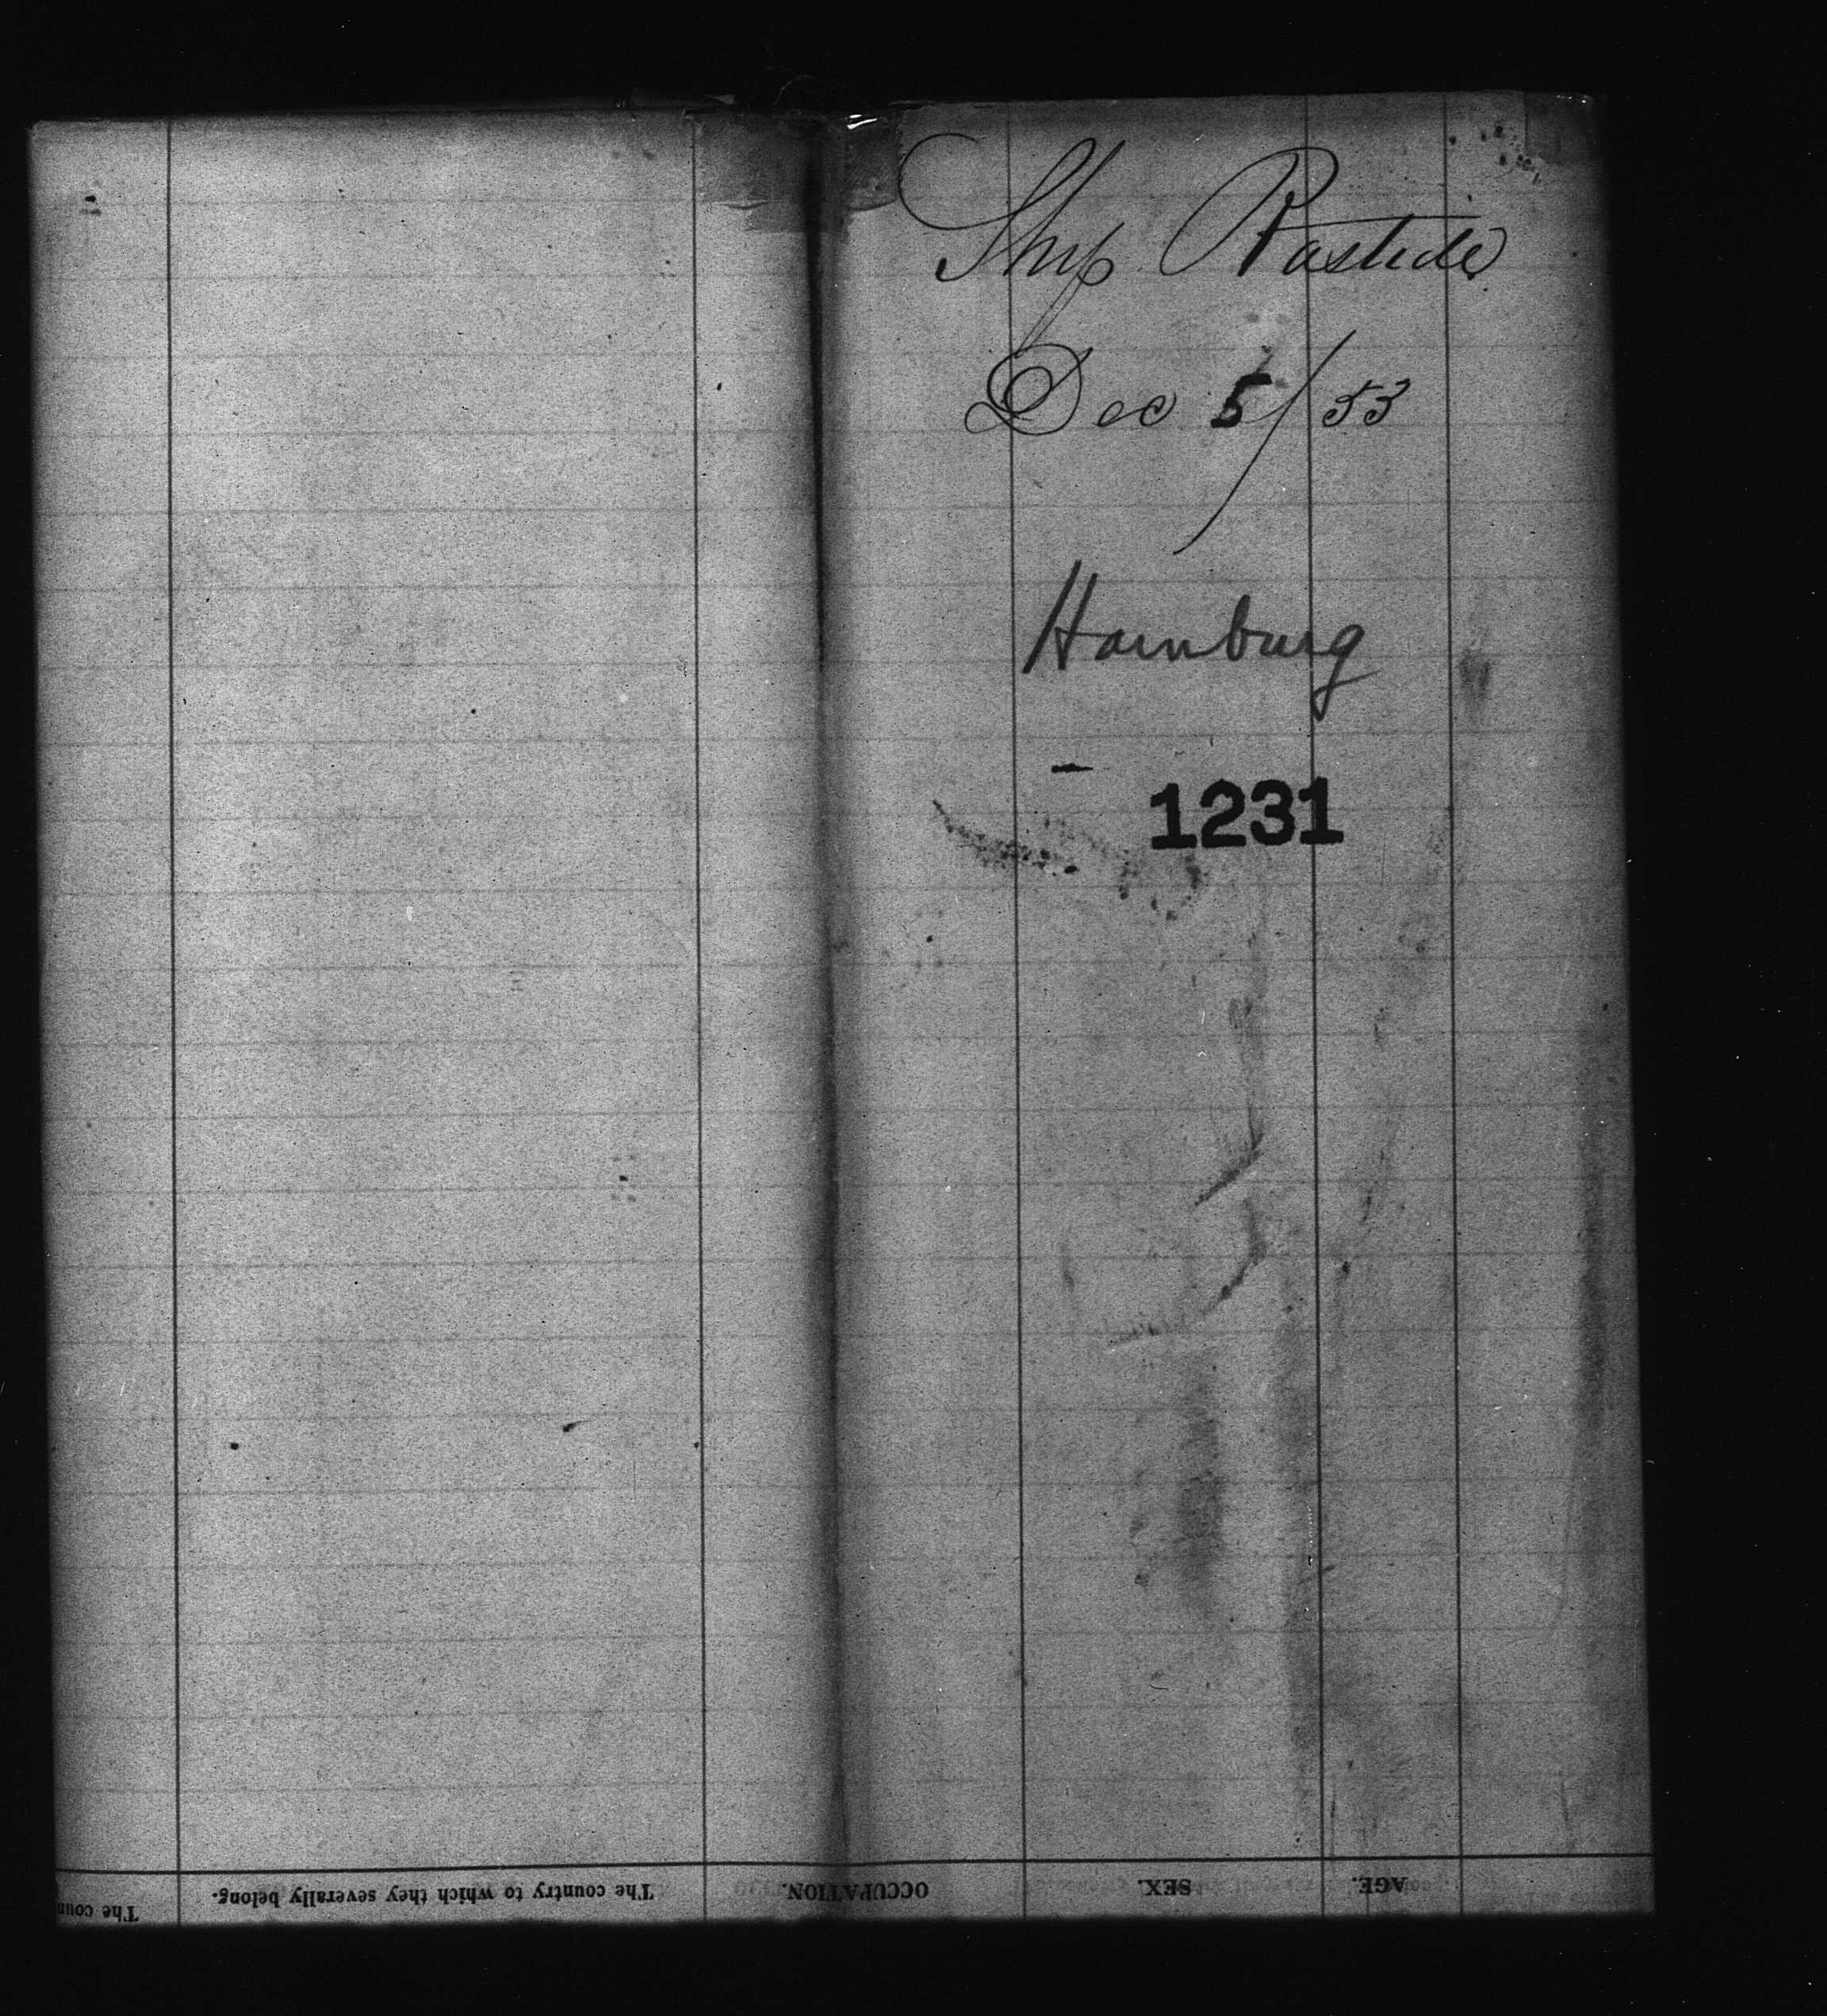 Ship Rastede
Dec 5/53
Hamburg
1231
AGE.
SEX.
OCCUPATION.
The country to which they severally belong.
The coun